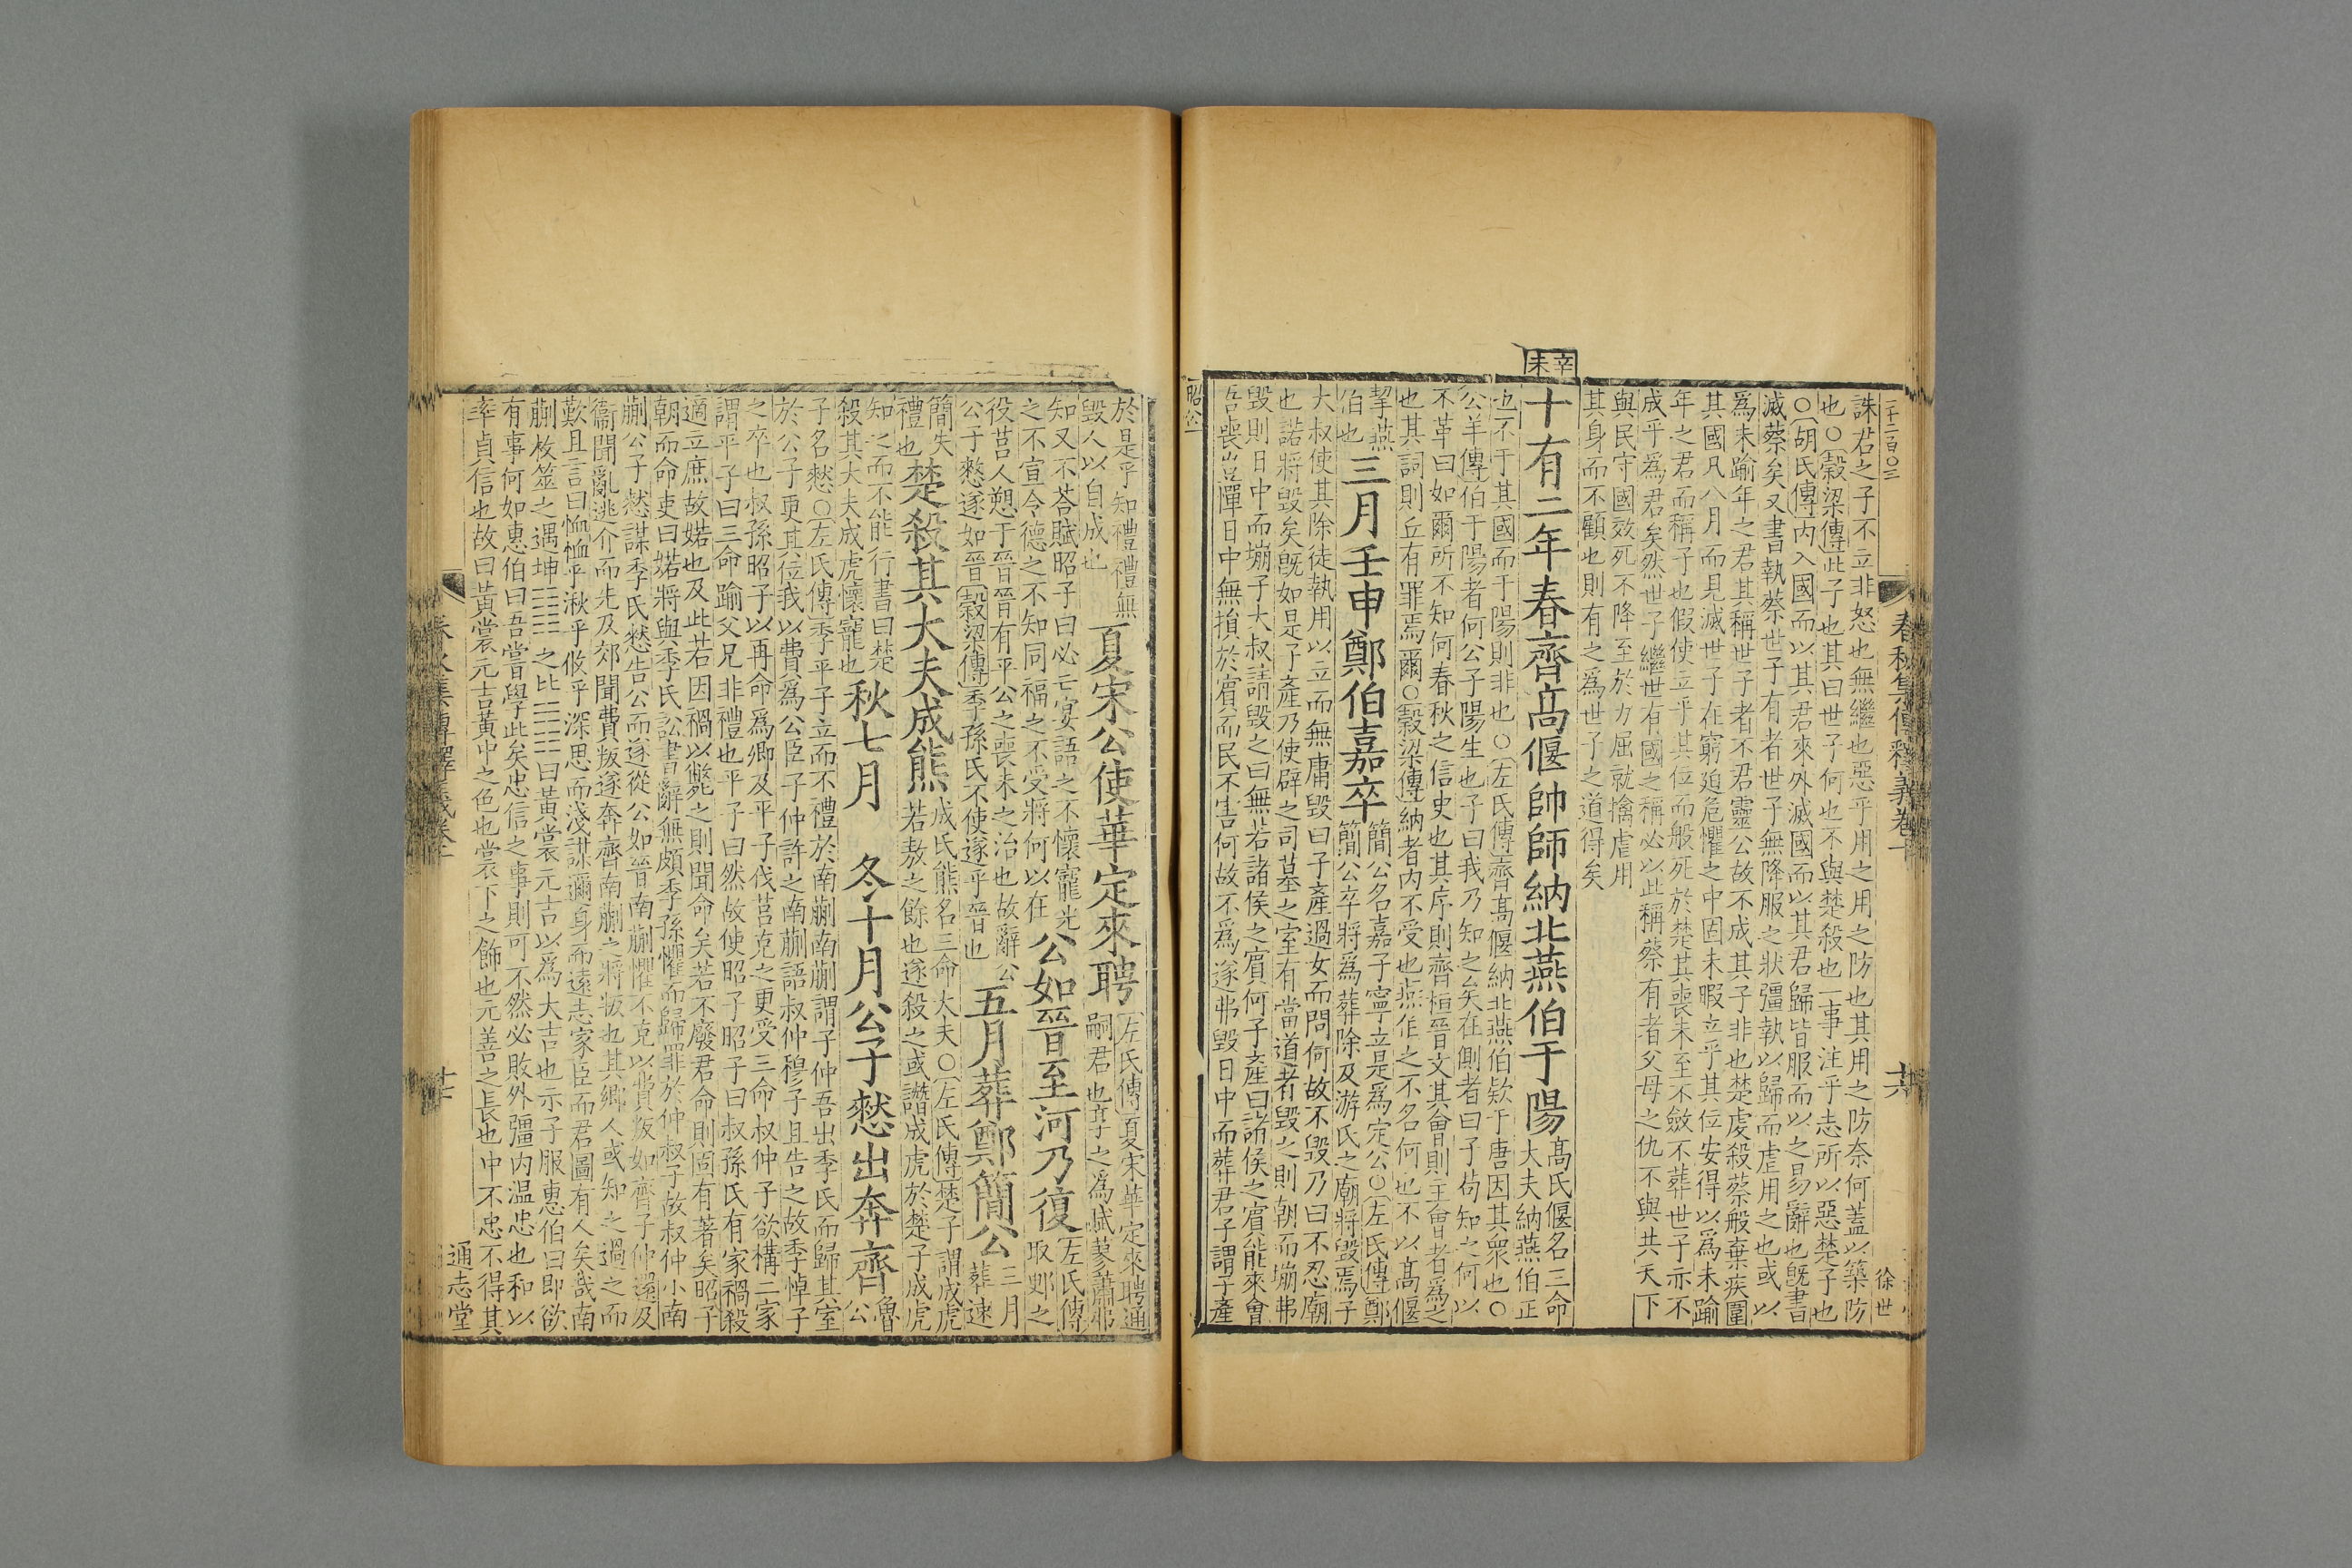 二千二百〇三
春秋集傳釋義卷十
徐世
誅君之子不立非怒也無繼也惡乎用之用之防也其用之防奈何蓋以築防
也〇穀梁傳此子也其曰世子何也不與楚殺也一事注乎志所以惡楚子也
〇胡氏傳內入國而以其君來外滅國而以其君歸皆服而以之易辭也旣書
滅蔡矣又書執蔡世子有者世子無降服之狀彊執以歸而虐用之也或以
爲未踰年之君其稱世子者不君靈公故不成其子非也楚虔殺蔡般棄疾圍
其國凡八月而見滅世子在窮廹危懼之中固未暇立乎其位安得以爲未踰
年之君而稱子也假使立乎其位而般死於楚其喪未至不斂不葬世子亦不
成乎爲君矣然世子繼世有國之稱必以此稱蔡有者父母之仇不與共天下
與民守國效死不降至於力屈就擒虐用
其身而不顧也則有之爲世子之道得矣
辛未
十有二年春齊高偃帥師納北燕伯于陽
高氏偃名三命
大夫納燕伯正
也不于其國而于陽則非也〇左氏傳齊高偃納北燕伯欵于唐因其衆也〇
公羊傳伯于陽者何公子陽生也子曰我乃知之矣在側者曰子苟知之何以
不革曰如爾所不知何春秋之信史也其序則齊桓晉文其會則主會者爲之
也其詞則丘有罪焉爾〇穀梁傳納者內不受也燕伯之不名何也不以高偃
挈燕
伯也
三月壬申鄭伯嘉卒
簡公名嘉子寧立是爲定公〇左氏傳鄭
簡公卒將爲葬除及游氏之廟將毀焉子
大叔使其除徒執用以立而無庸毀曰子產過女而問何故不毀乃曰不忍廟
也諾將毀矣旣如是子產乃使辟之司墓之室有當道者毀之則朝而塴弗
毀則日中而塴子大叔請毀之曰無若諸侯之賓何子產曰諸侯之賓能來會
吾喪豈憚日中無損於賓而民不害何故不爲遂弗毀日中而葬君子謂子產
昭公
於是乎知禮禮無
毀人以自成也
夏宋公使華定來聘
左氏傳夏宋華定來聘通
嗣君也享之爲賦蓼蕭弗
知又不荅賦昭子曰必亡宴語之不懷寵光
之不宣令德之不知同福之不受將何以在
公如晉至河乃復
左氏傳
取郠之
役莒人愬于晉晉有平公之喪未之治也故辭公
公子憗遂如晉穀梁傳季孫氏不使遂乎晉也
五月葬鄭簡公
三月
葬速
簡失
禮也
楚殺其大夫成熊
成氏熊名三命大夫〇左氏傳楚子謂成虎
若敖之餘也遂殺之或譖成虎於楚子成虎
知之而不能行書曰楚
殺其大夫成虎懷寵也
秋七月
冬十月公子憗出奔齊
魯
公
子名憗〇左氏傳季平子立而不禮於南蒯南蒯謂子仲吾出季氏而歸其室
於公子更其位我以費爲公臣子仲許之南蒯語叔仲穆子且告之故季悼子
之卒也叔孫昭子以再命爲卿及平子伐莒克之更受三命叔仲子欲構二家
謂平子曰三命踰父兄非禮也平子曰然故使昭子昭子曰叔孫氏有家禍殺
適立庶故婼也及此若因禍以斃之則聞命矣若不廢君命則固有著矣昭子
朝而命吏曰婼將與季氏訟書辭無頗季孫懼而歸罪於仲叔子故叔仲小南
蒯公子憗謀季氏憗告公而遂從公如晉南蒯懼不克以費叛如齊子仲還及
衞聞亂逃介而先及郊聞費叛遂奔齊南蒯之將叛也其鄉人或知之過之而
歎且言曰恤恤乎湫乎攸乎深思而淺謀邇身而遠志家臣而君圖有人矣哉南
蒯枚筮之遇坤☷☷之比☵☷曰黃裳元吉以爲大吉也示子服惠伯曰即欲
有事何如惠伯曰吾嘗學此矣忠信之事則可不然必敗外彊內温忠也和以
率貞信也故曰黃裳元吉黃中之色也裳下之飾也元善之長也中不忠不得其
通志堂